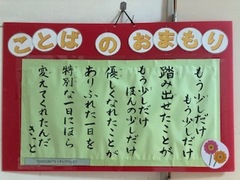 ことばのおまもり
もう少しだけ
もう少しだけ
踏み出せたことが
もう少しだけ
ほんの少しだけ
優しくなれたことが
ありふれた一日を
特別な一日にほら
変えてくれたんだ
きっと